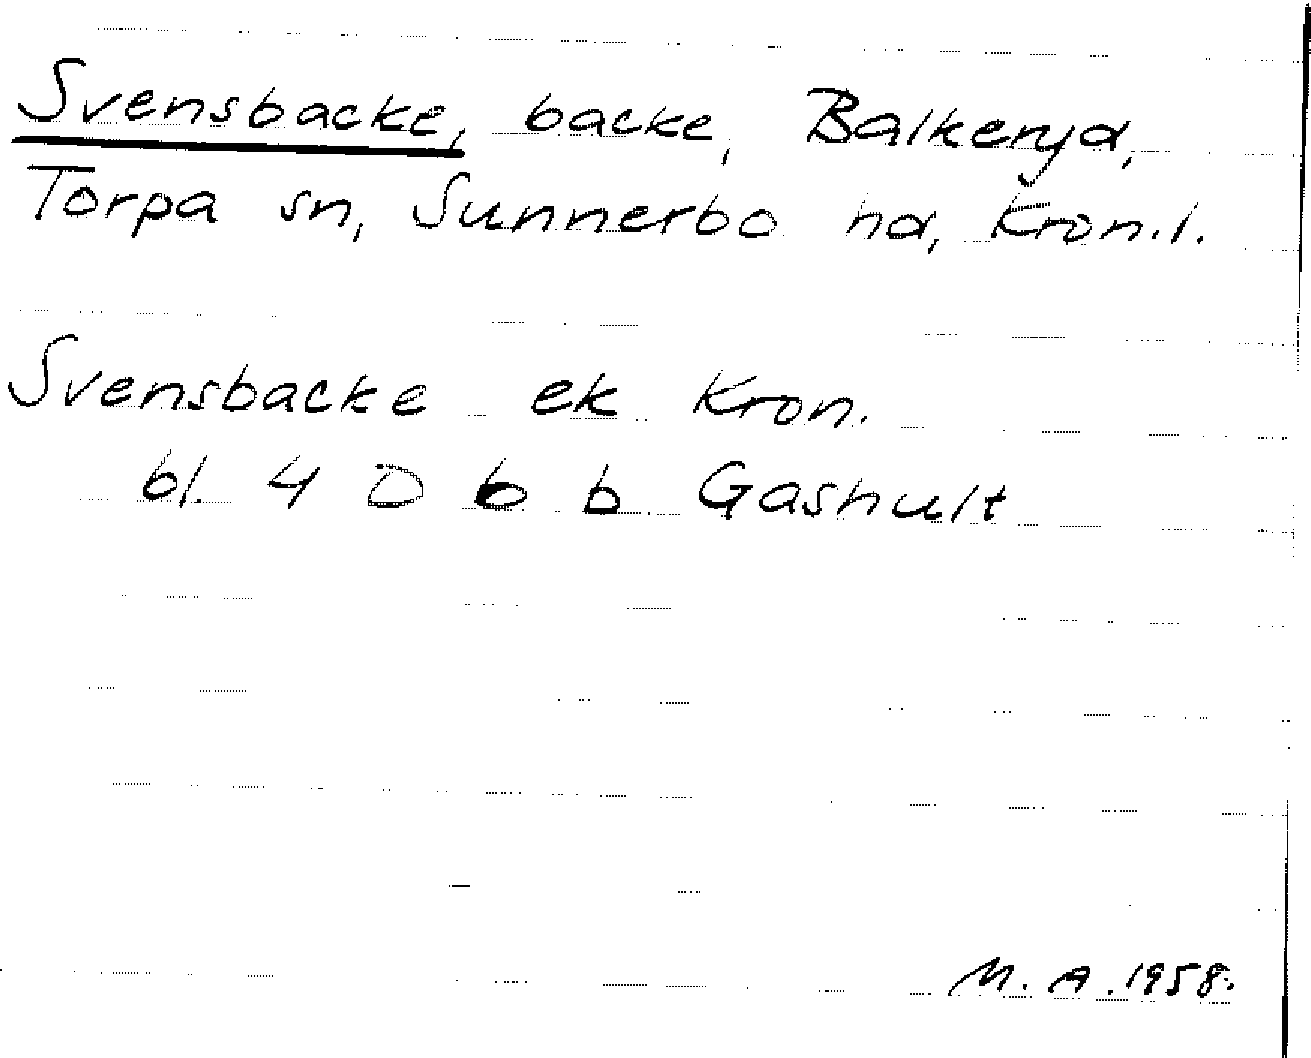 Svensbacke, backe, Balkeryd,
Torpa sn, Sunnerbo hd, Kron.l.
Svensbacke ek Kron.
bl. 4 D b b Gashult
M. A. 1958.